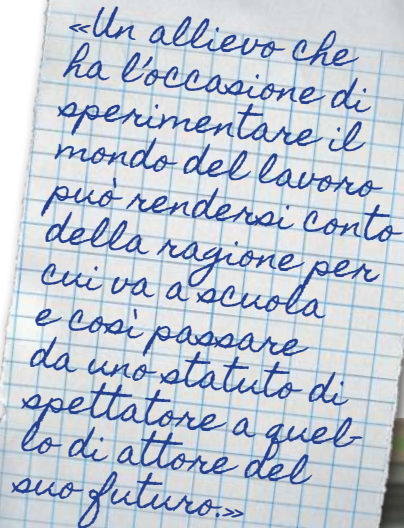 «Un allievo che
ha l'occasione di
sperimentare il
mondo del lavoro
può rendersi conto
della ragione per
cui va a scuola
e così passare
da uno statuto di
spettatore a quel-
lo di attore del
suo futuro.»